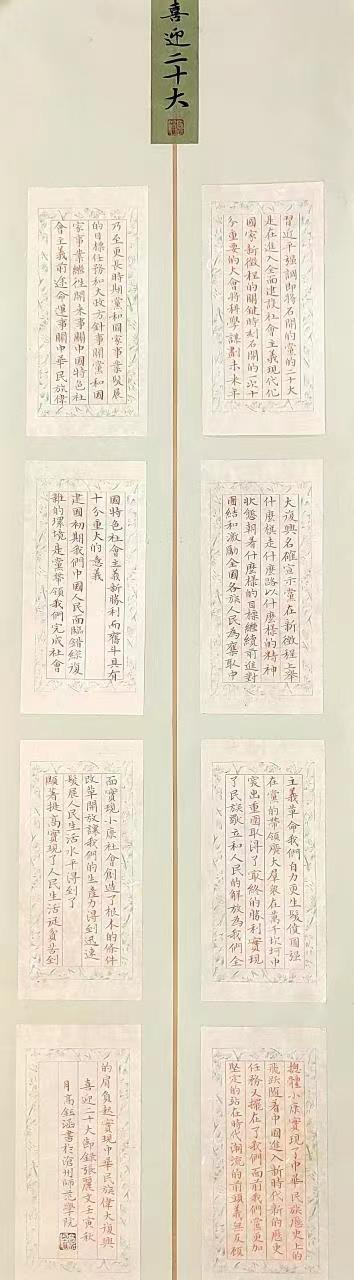 喜迎二十大
習近平强調即將召開的黨的二十大
是在進入全面建設社會主義現代化
國家新徵程的關鍵時刻召開的一次十
分重要的大會將科學謀劃未来年
乃至更長時期黨和國家事業發展
的目標任務和大政方針事關黨和國
家事業繼往開来事關中國特色社
會主義前途命運事關中華民族偉
大復興名確宣示黨在新徵程上舉
什麼旗走什麼路以什麼樣的精神
狀態朝着什麼樣的目標繼續前進對
團结和激勵全國各族人民為奪取中
國特色社會主義新勝利而奮斗具有
十分重大的意義
建國初期我們中國人民面臨錯綜復
雜的環境是黨帶領我們完成社會
主義革命我們自力更生發憤圖强
在黨的帶領廣大羣衆在萬千坎坷中
突出重圍取得了最終的勝利實現
了民族獨立和人民的解放為我們全
面實現小康社會創造了根本的條件
改革開放讓我們的生産力得到迅速
發展人民生活水平得到了
顯著提高實現了人民生活従貧苦到
總體小康實現了中華民族歷史上的
飛跃隨着中國進入新時代新的歷史
任務又擺在了我們面前我們黨更加
堅定的站在時代潮流的前頭義無反顧
的肩負起實現中華民族偉大復興
喜迎二十大節録張麗文壬寅秋
月高鈺涵書於滄州師范學院